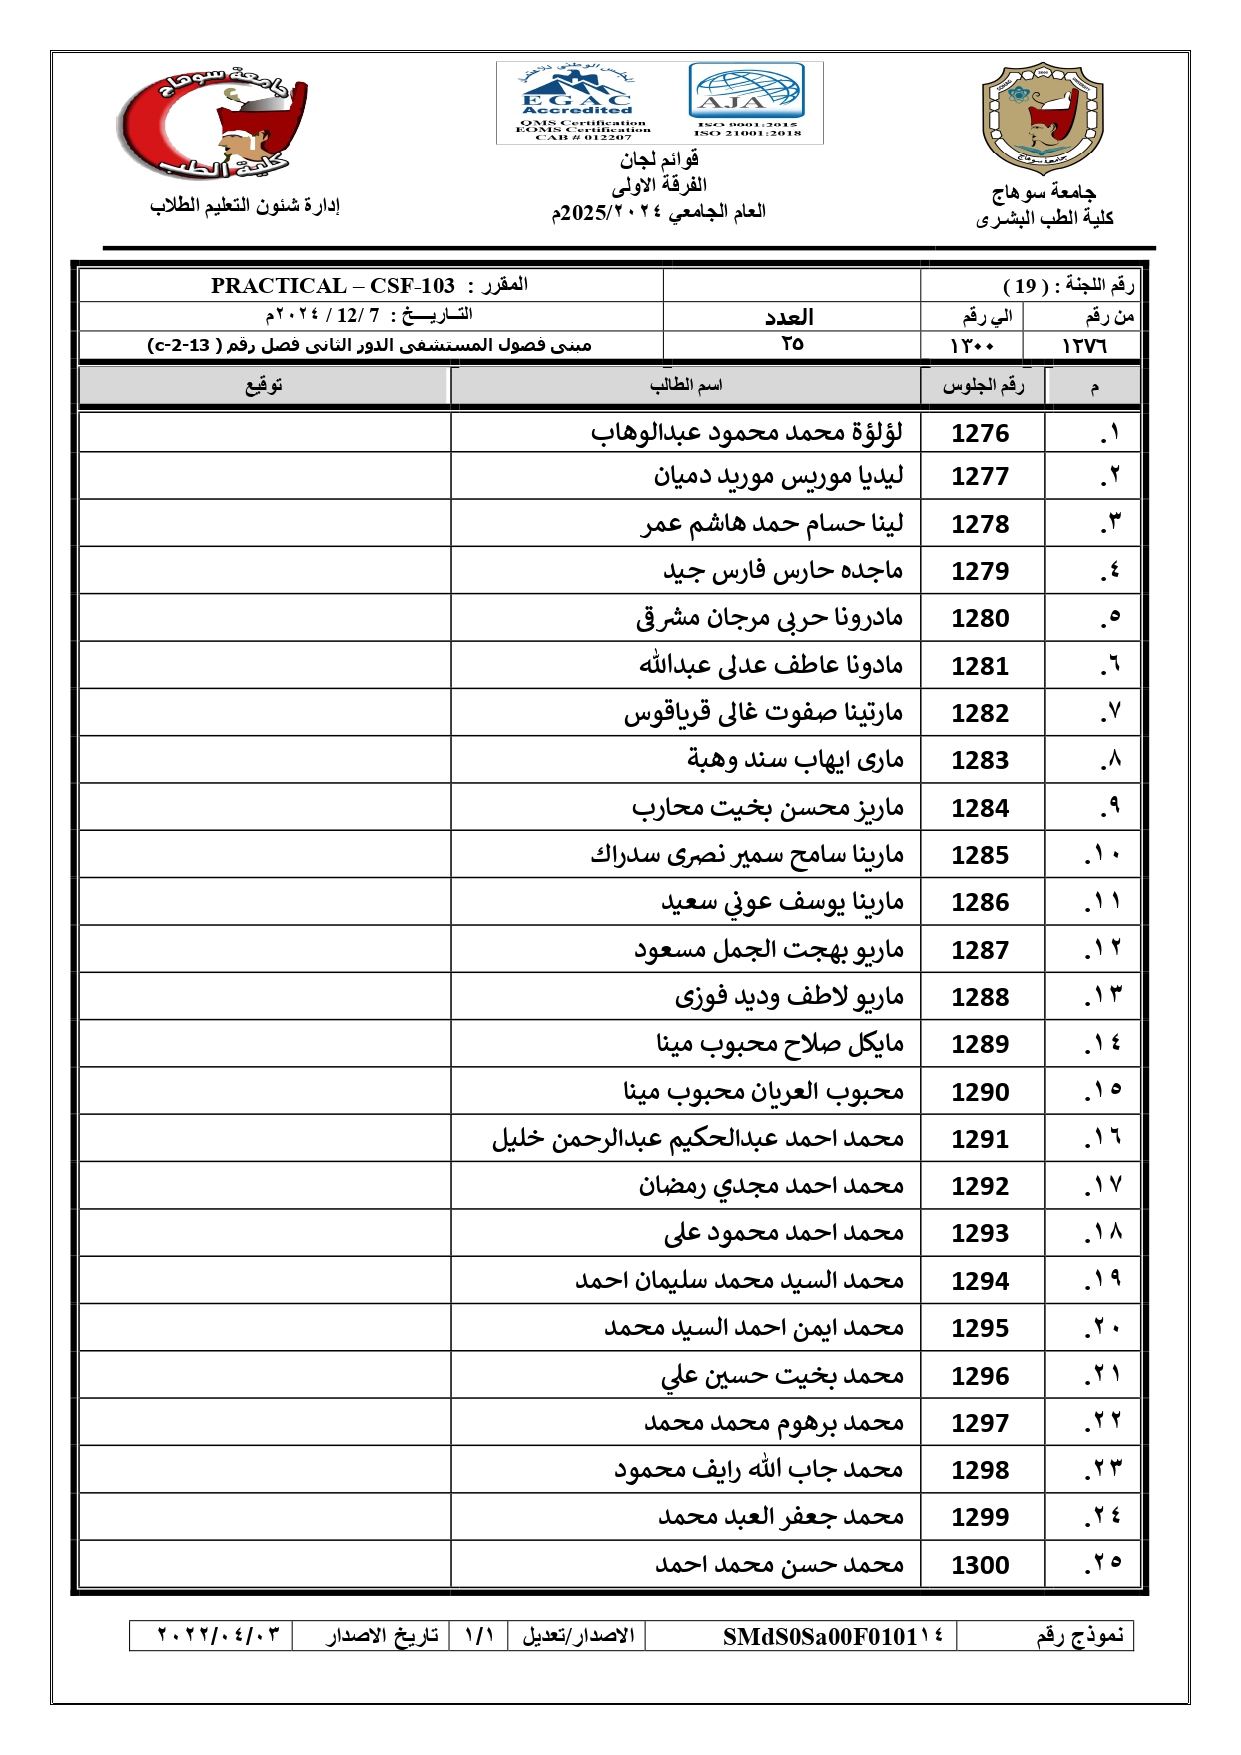 جامعة سوهاج
كلية الطب البشرى
EGAC
Accredited
QMS Certification
EOMS Certification
CAB # 012207
AJA
ISO 9001:2015
ISO 21001:2018
قوائم لجان
الفرقة الاولى
العام الجامعي ٢٠٢٤/2025م
جامعة سوهاج
كلية الطب
إدارة شئون التعليم الطلاب
رقم اللجنة : ( 19 ) المقرر : PRACTICAL – CSF-103
من رقم الي رقم العدد التــاريــــخ : 7 /12 / ٢٠٢٤م
١٢٧٦ ١٣٠٠ ٢٥ مبنى فصول المستشفى الدور الثانى فصل رقم ( c-2-13)
م رقم الجلوس اسم الطالب توقيع
١. 1276 لؤلؤة محمد محمود عبدالوهاب
٢. 1277 ليديا موريس موريد دميان
٣. 1278 لينا حسام حمد هاشم عمر
٤. 1279 ماجده حارس فارس جيد
٥. 1280 مادرونا حربى مرجان مشرقى
٦. 1281 مادونا عاطف عدلى عبدالله
٧. 1282 مارتينا صفوت غالى قرياقوس
٨. 1283 مارى ايهاب سند وهبة
٩. 1284 ماريز محسن بخيت محارب
١٠. 1285 مارينا سامح سمير نصرى سدراك
١١. 1286 مارينا يوسف عوني سعيد
١٢. 1287 ماريو بهجت الجمل مسعود
١٣. 1288 ماريو لاطف وديد فوزى
١٤. 1289 مايكل صلاح محبوب مينا
١٥. 1290 محبوب العريان محبوب مينا
١٦. 1291 محمد احمد عبدالحكيم عبدالرحمن خليل
١٧. 1292 محمد احمد مجدي رمضان
١٨. 1293 محمد احمد محمود على
١٩. 1294 محمد السيد محمد سليمان احمد
٢٠. 1295 محمد ايمن احمد السيد محمد
٢١. 1296 محمد بخيت حسين علي
٢٢. 1297 محمد برهوم محمد محمد
٢٣. 1298 محمد جاب الله رايف محمود
٢٤. 1299 محمد جعفر العبد محمد
٢٥. 1300 محمد حسن محمد احمد
نموذج رقم SMdS0Sa00F0101١٤ الاصدار/تعديل ١/١ تاريخ الاصدار ٢٠٢٢/٠٤/٠٣